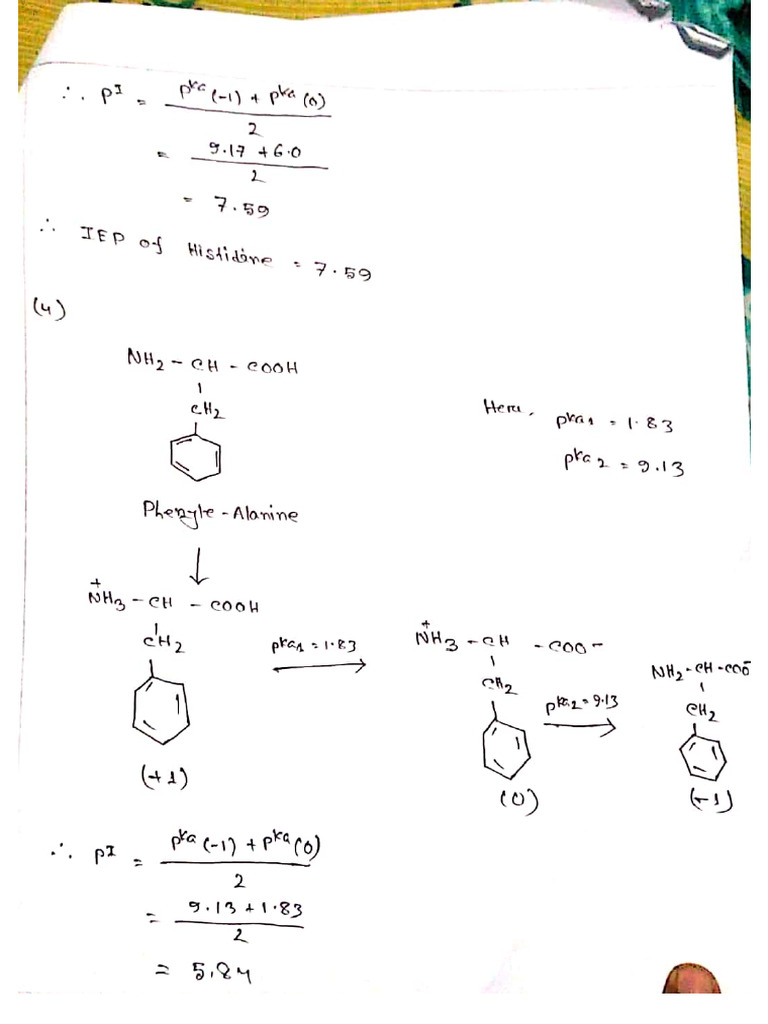 ∴ pI = pka (-1) + pka (0)
2
= 9.17 + 6.0
2
= 7.59
∴ IEP of Histidine = 7.59
(4)
NH2 - CH - COOH
CH2
Here, pka1 = 1.83
pka2 = 9.13
Phenyle-Alanine
+NH3 - CH - COOH
CH2
pka1 = 1.83
(+1)
+NH3 - CH - COO-
CH2
pka2 = 9.13
(0)
NH2 - CH - COO-
CH2
(-1)
∴ pI = pka (-1) + pka (0)
2
= 9.13 + 1.83
2
= 5.84